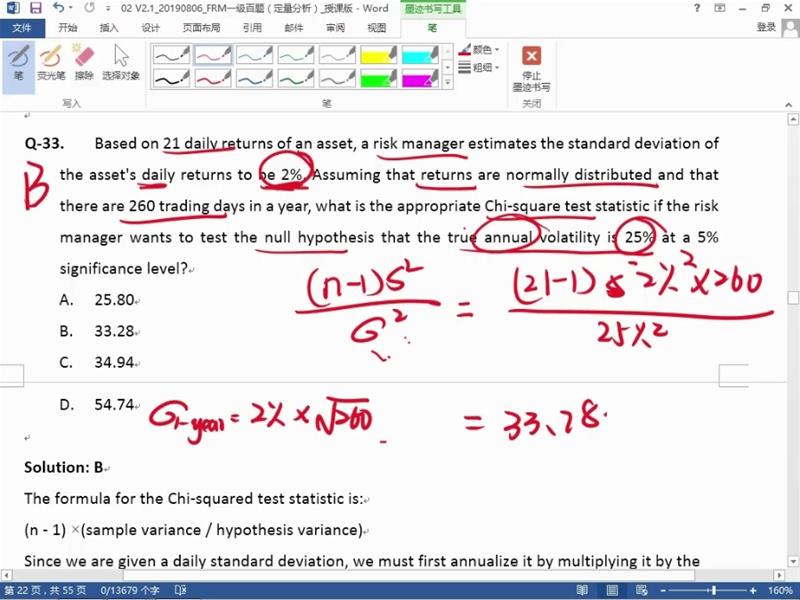 02 V2.1_20190806_FRM一级百题（定量分析）_授课版 - Word
墨迹书写工具
文件 开始 插入 设计 页面布局 引用 邮件 审阅 视图 笔
登录
笔 荧光笔 擦除 选择对象
颜色
粗细
停止
墨迹书写
写入 笔 关闭
Q-33. Based on 21 daily returns of an asset, a risk manager estimates the standard deviation of
the asset's daily returns to be 2%. Assuming that returns are normally distributed and that
B
there are 260 trading days in a year, what is the appropriate Chi-square test statistic if the risk
manager wants to test the null hypothesis that the true annual volatility is 25% at a 5%
significance level?
A. 25.80
(n-1)S² / σ² = (21-1) 2%² × 260 / 25%²
B. 33.28
C. 34.94
D. 54.74
σ1-year = 2% × √260
= 33.28
Solution: B
The formula for the Chi-squared test statistic is:
(n - 1) ×(sample variance / hypothesis variance)
Since we are given a daily standard deviation, we must first annualize it by multiplying it by the
第 22 页，共 55 页 0/13679 个字 160%